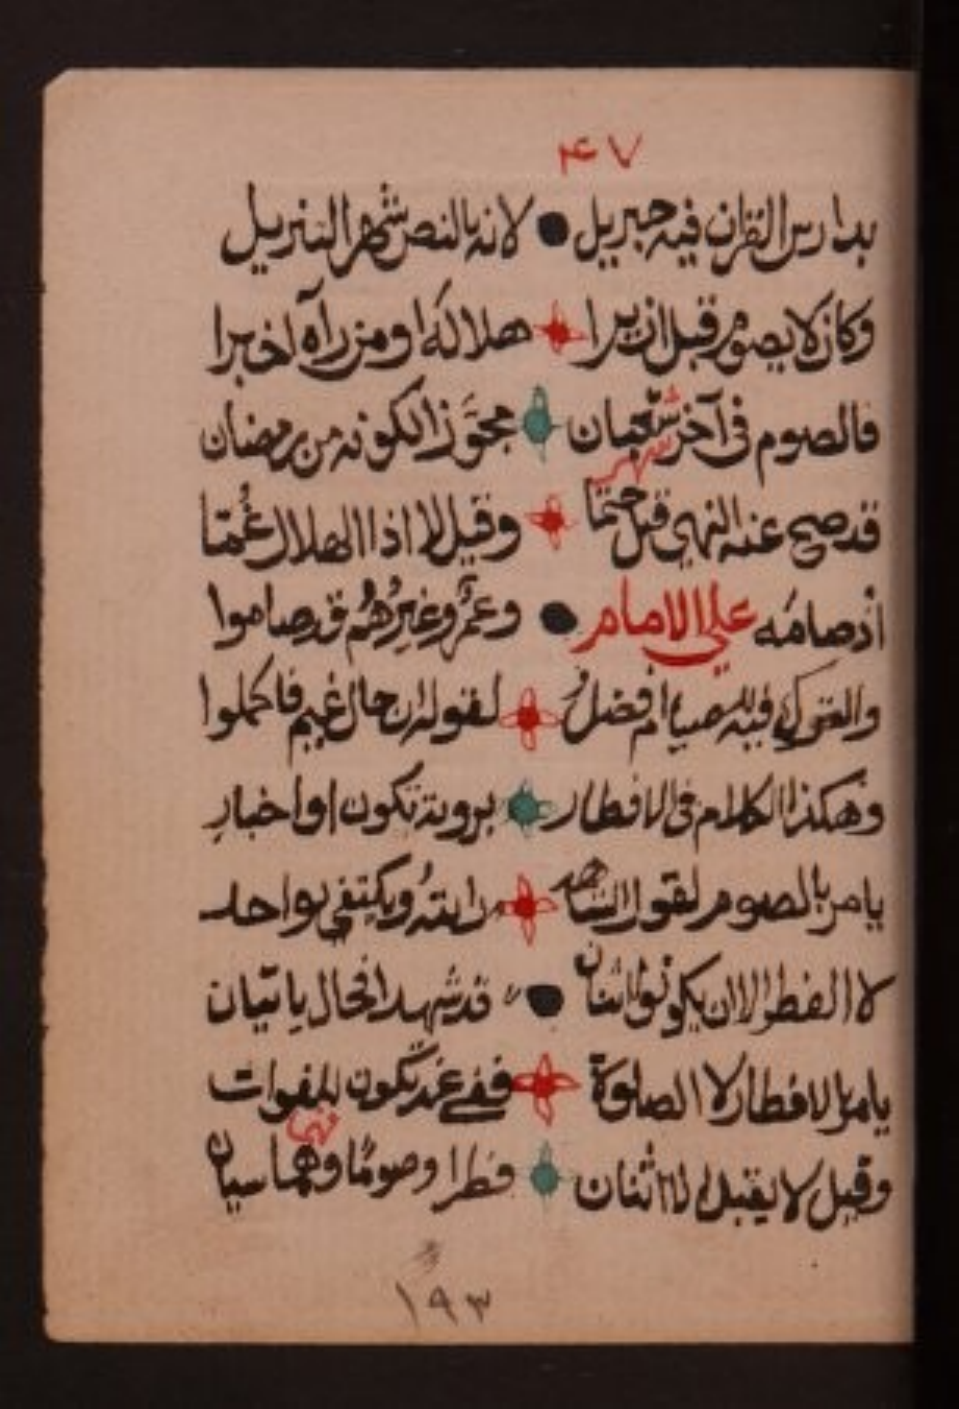 ٤٧
يدارس القران فيه جبريل ● لانه بالنص شهر التنزيل
وكان لا يصوم قبل ان يرا هلالَه او من رآه اخبرا
فالصوم فى آخر شعبان مجوَّزا لكونه من رمضان
شهر
قد صح عنه النهي قبل حتما وقيل لا اذا الهلال غُمّتا
اذ صامه علي الامام ● وعمرٌ وغيرُهُم قد صاموا
والقول فيه للصيام افضل لقوله ان حال غيم فاكملوا
وهكذا الكلام فى الافطار بروية تكون او اخبارِ
يامر بالصوم لقول الشاهد رايته ويكتفي بواحد
لا الفطر الا ان يكونوا اثنان ● قد شهدا فحال ياتيان
يامر بالافطار لا الصلوة ففي غد تكون للفوات
فهما
وقيل لا يقبل الا اثنان فطرا وصومًا وهما سيان
١٩٣